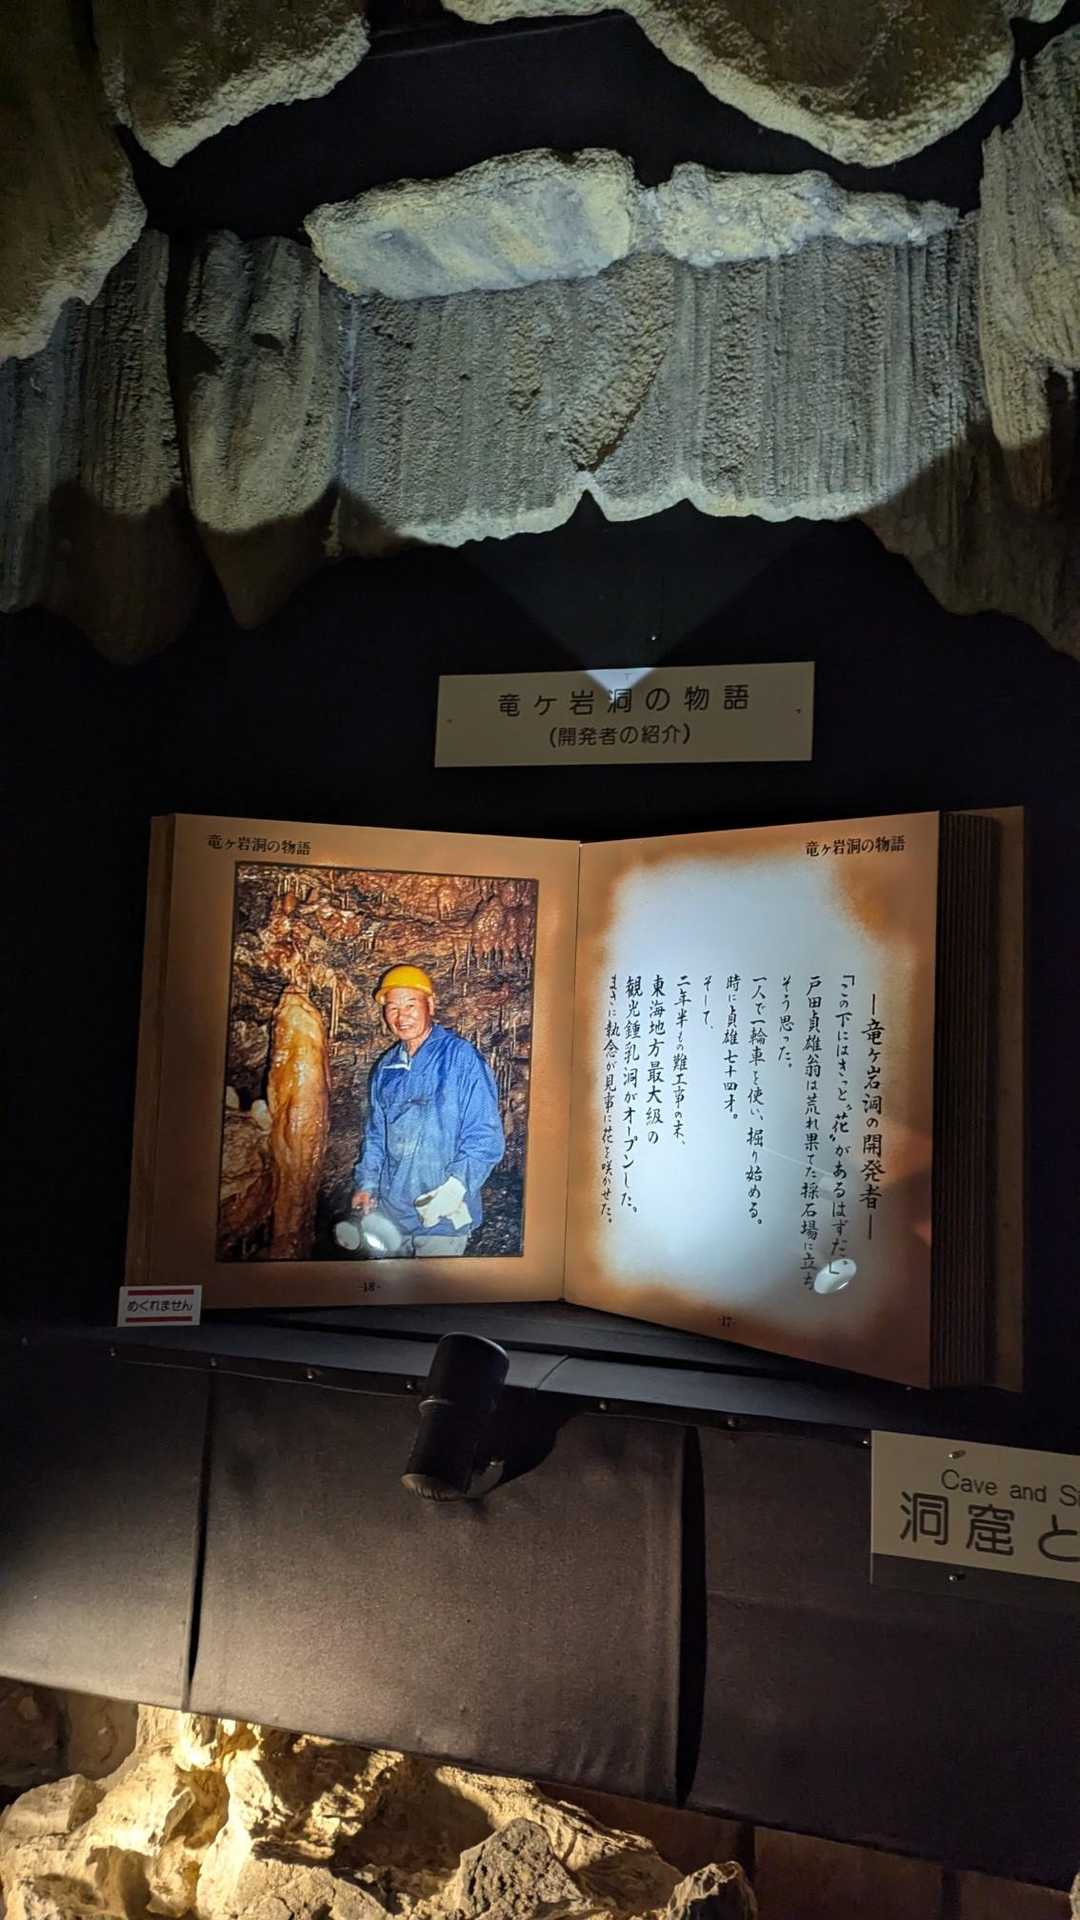 竜ヶ岩洞の物語
(開発者の紹介)
竜ヶ岩洞の物語
―竜ヶ岩洞の開発者―
「この下にはきっと〝花〟があるはずだ。」
戸田貞雄翁は荒れ果てた採石場に立ち
そう思った。
一人で一輪車を使い、掘り始める。
時に貞雄七十四才。
そして、
二年半もの難工事の末、
東海地方最大級の
観光鍾乳洞がオープンした。
まさに執念が見事に花を咲かせた。
-17-
竜ヶ岩洞の物語
-18-
めくれません
Cave and S
洞窟と